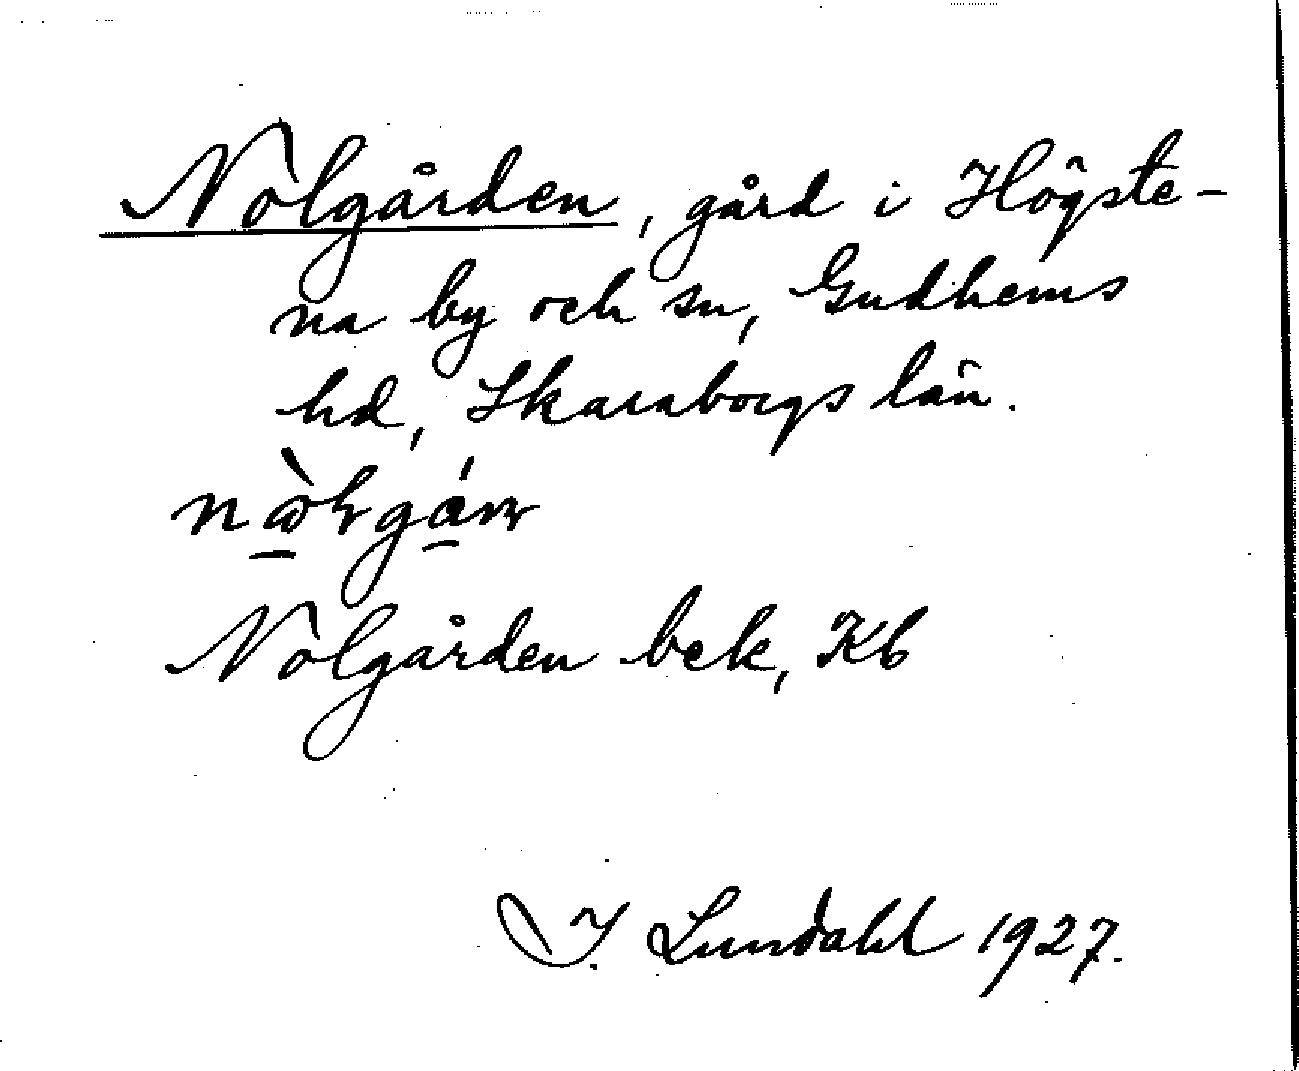 Nolgården, gård i Högste-
na by och sn, Gudhems
hd, Skaraborgs län.
Nolgården bek, Kb
I. Lundahl 1927.